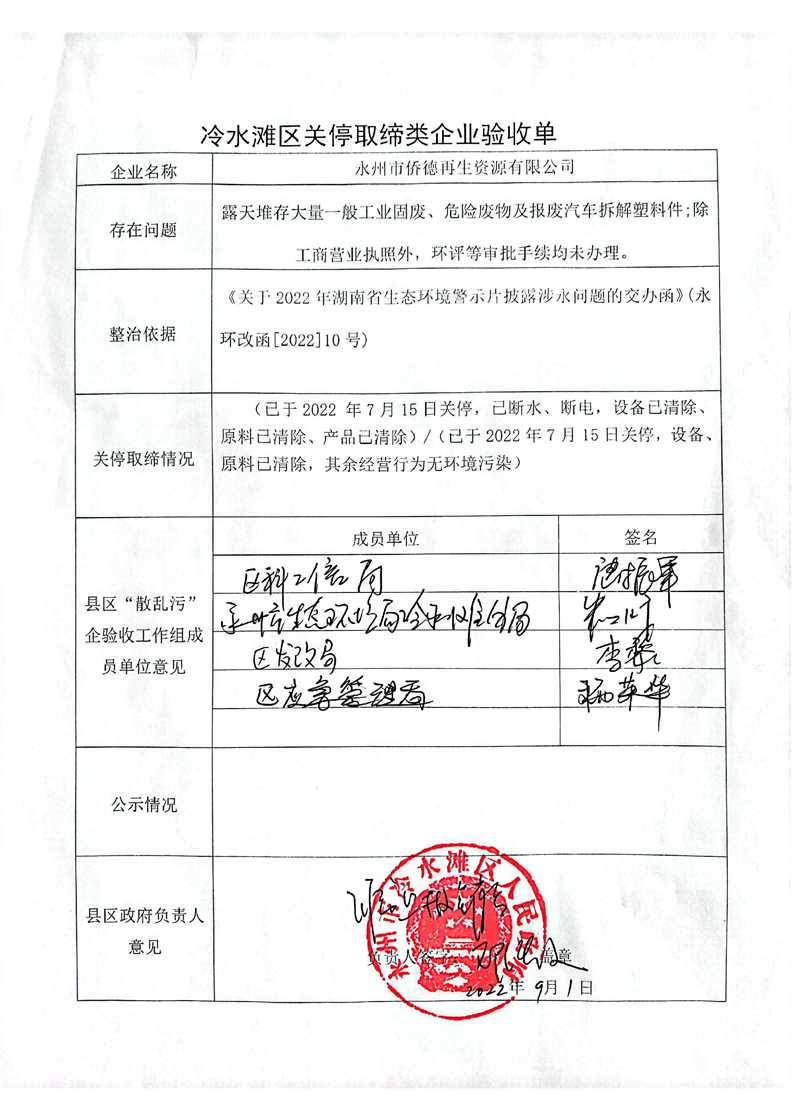 冷水滩区关停取缔类企业验收单
企业名称
永州市侨德再生资源有限公司
存在问题
露天堆存大量一般工业固废、危险废物及报废汽车拆解塑料件;除
工商营业执照外，环评等审批手续均未办理。
整治依据
《关于2022年湖南省生态环境警示片披露涉水问题的交办函》(永
环改函[2022]10号)
关停取缔情况
（已于2022 年7月15日关停，已断水、断电，设备已清除、
原料已清除、产品已清除）/（已于2022年7月15日关停，设备、
原料已清除，其余经营行为无环境污染）
县区“散乱污”
企验收工作组成
员单位意见
成员单位
签名
区科工信局
永州市生态环境局冷水滩分局
区发改局
区应急管理局
公示情况
县区政府负责人
意见
永州市冷水滩区人民政府
负责人签字：
盖章
2022年9月1日